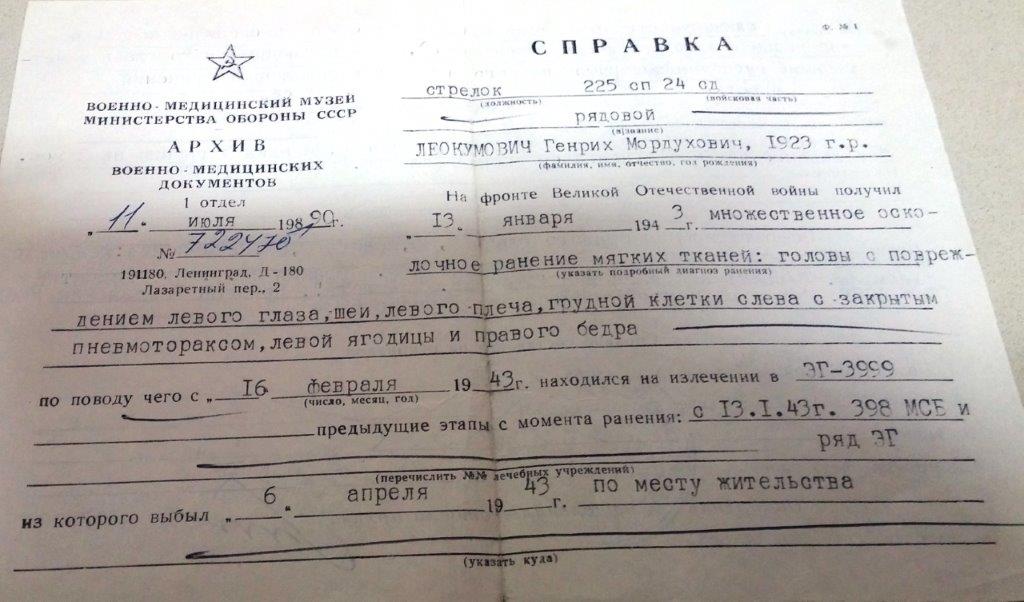 Ф. № 1
СПРАВКА
ВОЕННО-МЕДИЦИНСКИЙ МУЗЕЙ
МИНИСТЕРСТВА ОБОРОНЫ СССР
АРХИВ
ВОЕННО-МЕДИЦИНСКИХ
ДОКУМЕНТОВ
1 отдел
„11“ июля 1990г.
№ 722470
191180, Ленинград, Д-180
Лазаретный пер., 2
стрелок 225 сп 24 сд
(должность) (войсковая часть)
рядовой
(звание)
ЛЕОКУМОВИЧ Генрих Мордухович, 1923 г.р.
(фамилия, имя, отчество, год рождения)
На фронте Великой Отечественной войны получил
„13“ января 1943г. множественное оско-
лочное ранение мягких тканей: головы с повреж-
(указать подробный диагноз ранения)
дением левого глаза,шеи,левого плеча,грудной клетки слева с закрытым
пневмотораксом,левой ягодицы и правого бедра
по поводу чего с „16“ февраля 1943г. находился на излечении в ЭГ-3999
(число, месяц, год)
предыдущие этапы с момента ранения: с 13.I.43г. 398 МСБ и
ряд ЭГ
(перечислить №№ лечебных учреждений)
из которого выбыл „6“ апреля 1943г. по месту жительства
(указать куда)